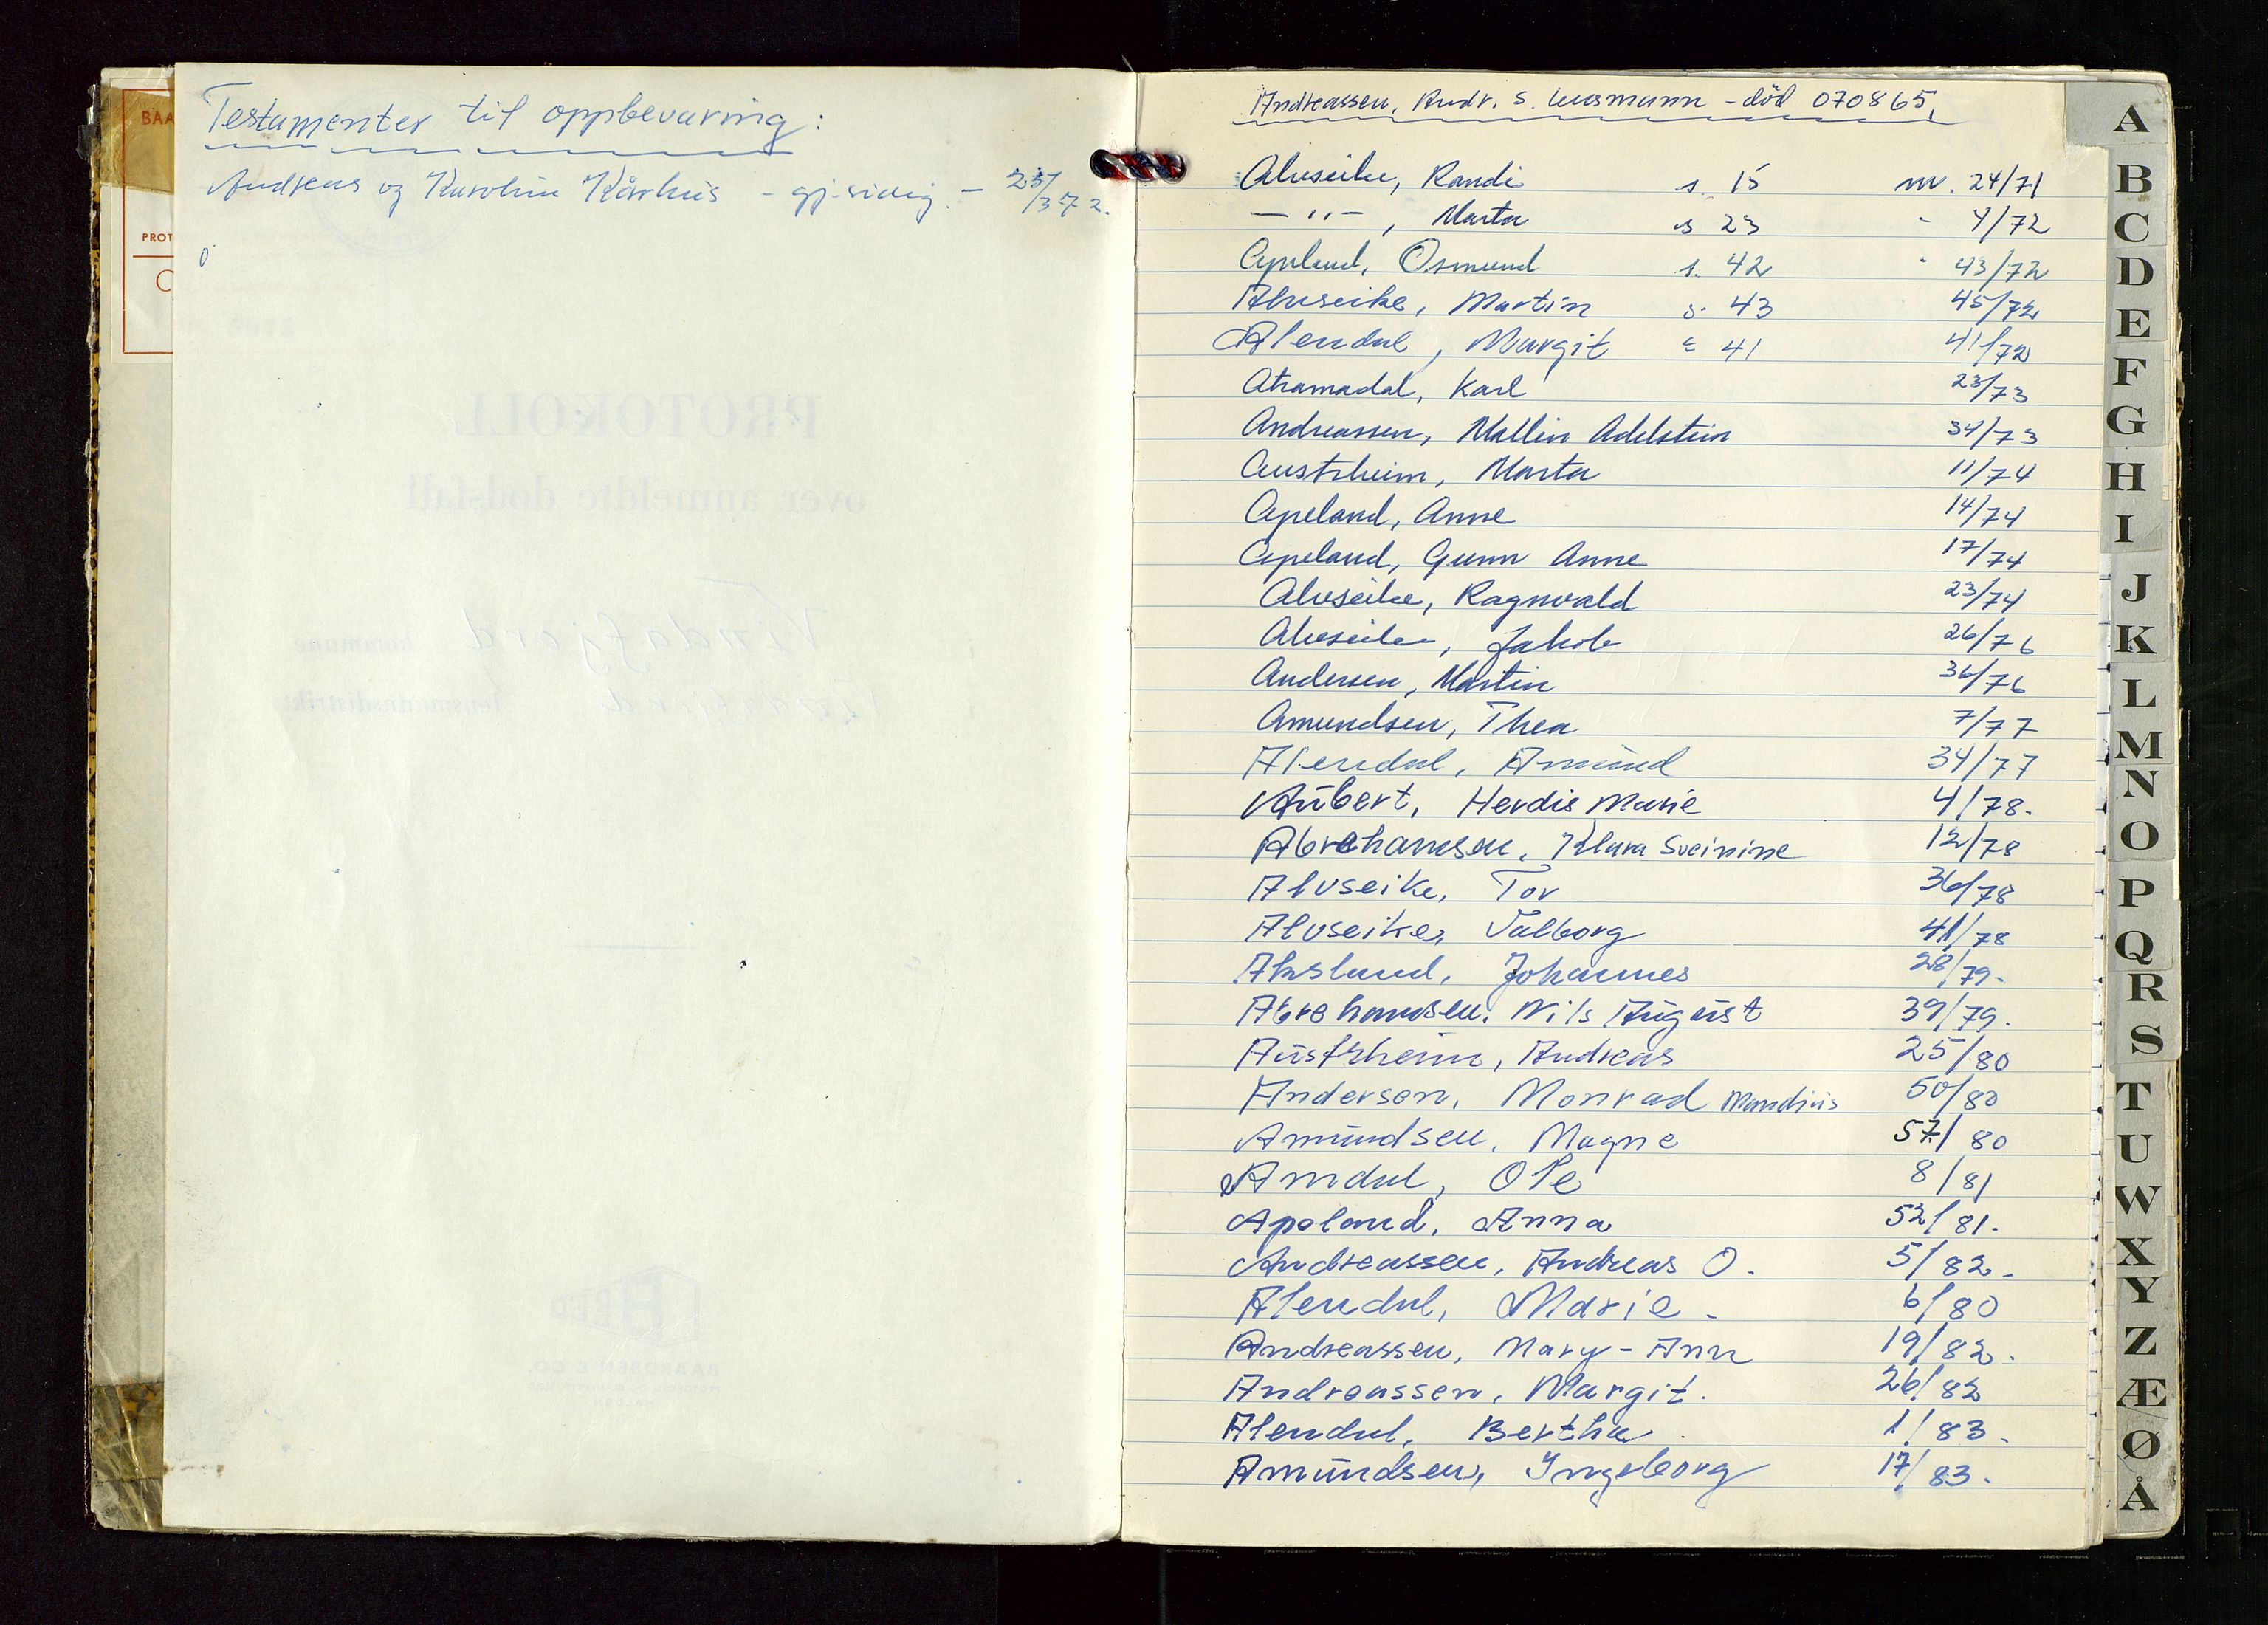 Testamenter til oppbevaring:
Andreas og Karoline Kårhus - gj.sidig. - 23/3-72.
BAA
PROT
PROTOKOLL
over anmeldte dødsfall
Vindafjord kommune
lensmannsdistrikt
Andreassen, Andr. S. lensmann - død 070865.
Alvseike, Randi s. 15 nr. 24/71
— " — , Marta s 23 - 4/72
Apeland, Osmund s. 42 - 43/72
Alvseike, Martin s. 43 45/72
Alendal, Margit s 41 41/72
Atramadal, Karl 23/73
Andreassen, Mallin Adelstein 34/73
Austrheim, Marta 11/74
Apeland, Anne 14/74
Apeland, Gunn Anne 17/74
Alvseike, Ragnvald 23/74
Alvseike, Jakob 26/76
Andersen, Martin 36/76
Amundsen, Thea 7/77
Alendal, Amund 34/77
Aubert, Herdis Marie 4/78.
Abrahamsen, Klara Sveinine 12/78
Alvseike, Tor 36/78
Alvseike, Valborg 41/78
Aksland, Johannes 28/79.
Abrahamsen, Nils August 39/79.
Austrheim, Andreas 25/80
Anderson, Monrad Mandius 50/80
Amundsen, Magne 57/80
Amdal, Ole 8/81
Apeland, Anna 52/81.
Andreassen, Andreas O. 5/82.
Alendal, Marie. 6/80
Andreassen, Mary-Ann 19/82.
Andreassen, Margit. 26/82
Alendal, Bertha. 1/83.
Amundsen, Ingeborg 17/83.
A
B
C
D
E
F
G
H
I
J
K
L
M
N
O
P
Q
R
S
T
U
W
X
Y
Z
Æ
Ø
Å